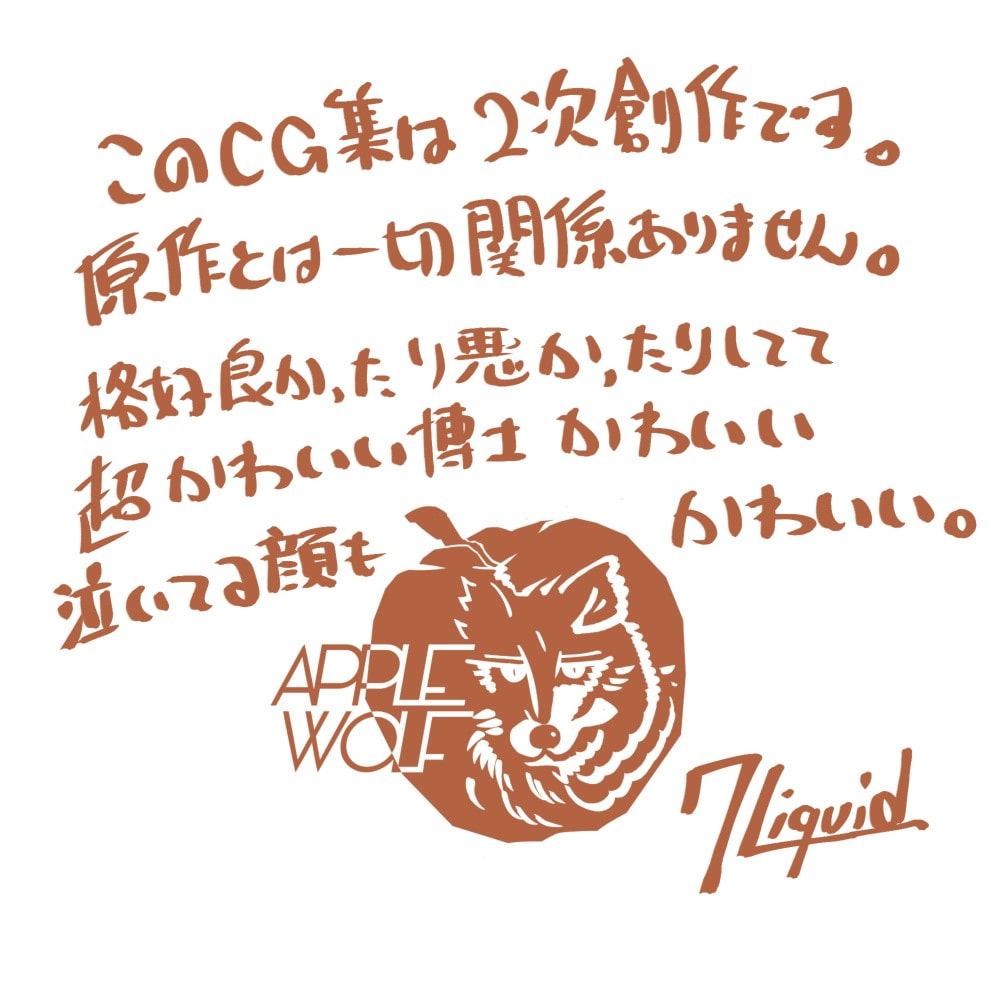 このCG集は2次創作です。
原作とは一切関係ありません。
格好良かったり悪かったりしてて
超かわいい博士 かわいい
泣いてる顔も かわいい。
APPLE
WOLF
7Liquid